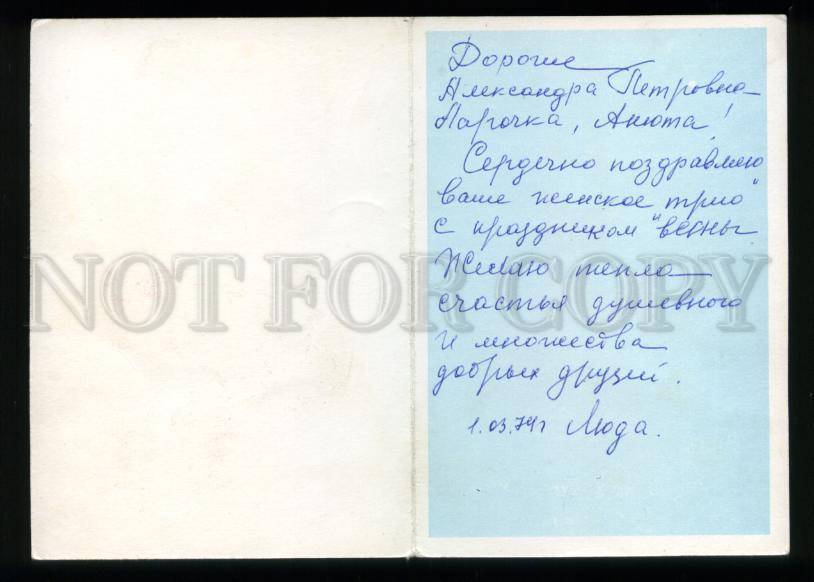 Дорогие
Александра Петровна
Ларочка, Анюта!
Сердечно поздравляю
ваше женское трио"
с праздником "весны
Желаю тепла
счастья душевного
и множества
добрых друзей.
1.03.74г Люда.
NOT FOR COPY